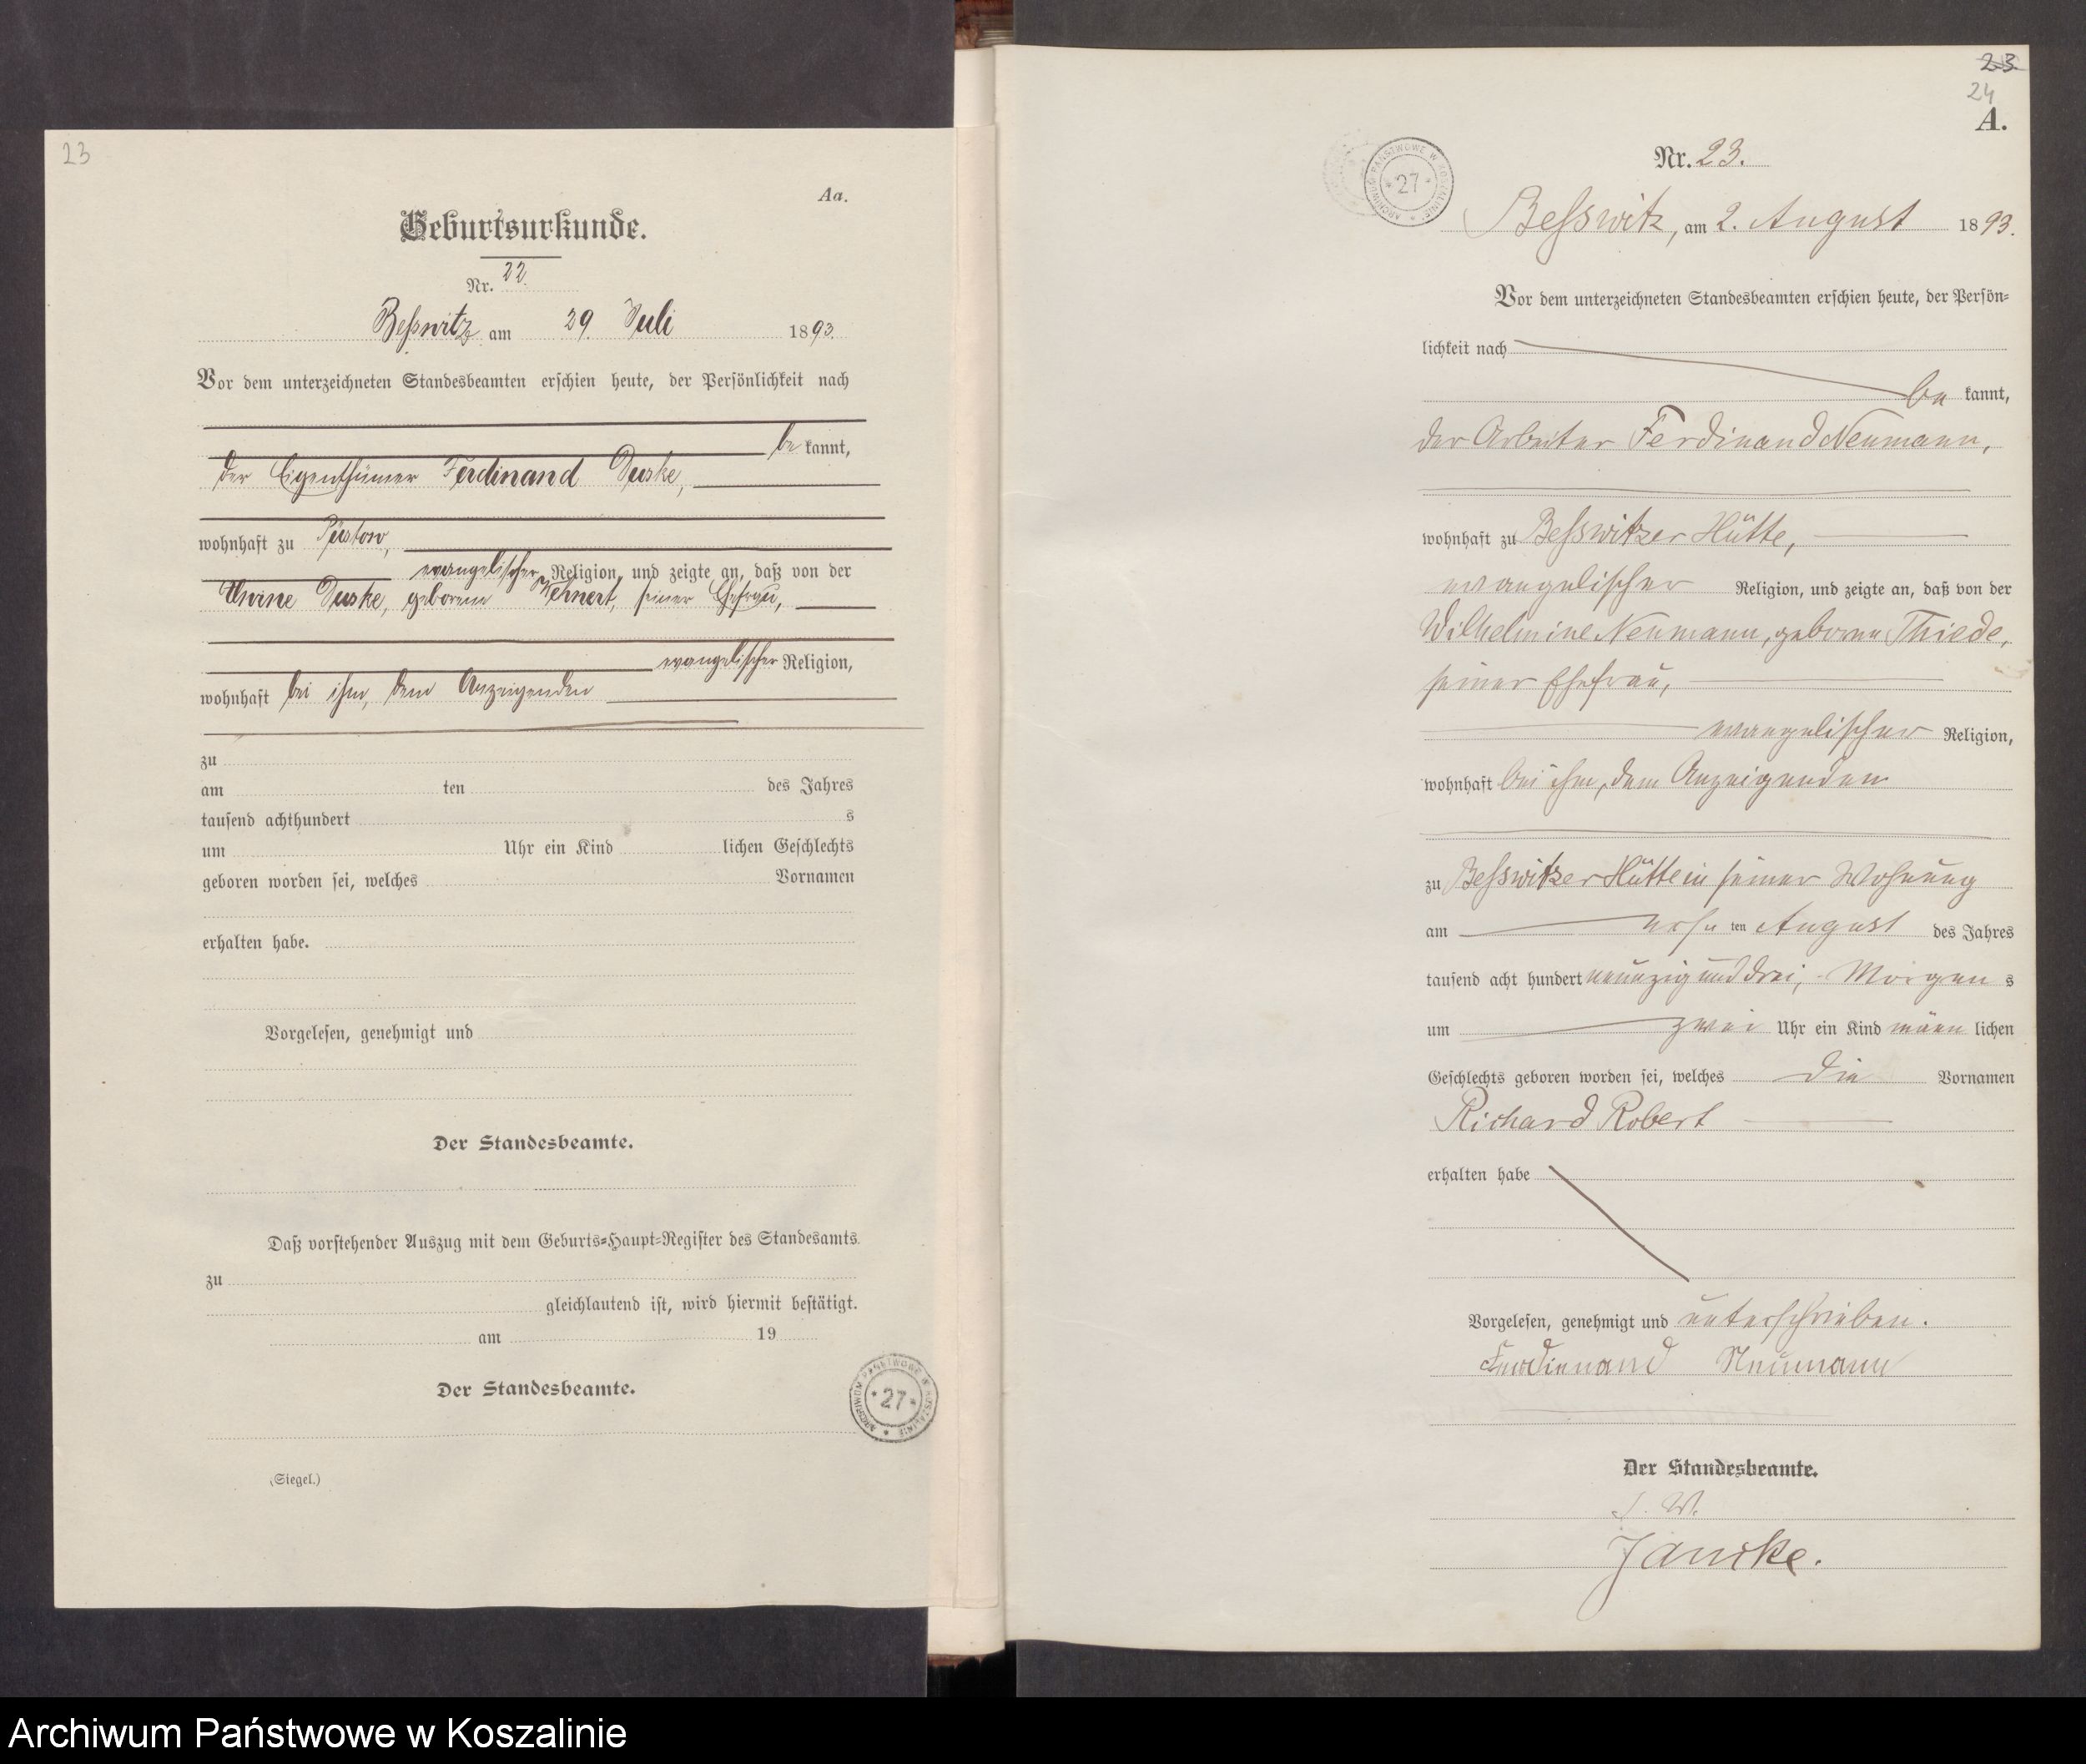 23
Aa.
Geburtsurkunde.
Nr. 22.
Besswitz am 29. Juli 1893.
Vor dem unterzeichneten Standesbeamten erschien heute, der Persönlichkeit nach
be kannt,
der Eigenthümer Ferdinand Duske,
wohnhaft zu Püstow,
evangelischer Religion, und zeigte an, daß von der
Duske, geborene seiner Ehefrau,
evangelischer Religion,
wohnhaft bei ihm, dem Anzeigenden
zu
am ten des Jahres
tausend achthundert s
um Uhr ein Kind lichen Geschlechts
geboren worden sei, welches Vornamen
erhalten habe.
Vorgelesen, genehmigt und
Der Standesbeamte.
Daß vorstehender Auszug mit dem Geburts-Haupt-Register des Standesamts
zu
gleichlautend ist, wird hiermit bestätigt.
am 19
Der Standesbeamte.
(Siegel.)
ARCHIWUM PAŃSTWOWE W KOSZALINIE * 27 *
23
24
A.
ARCHIWUM PAŃSTWOWE W KOSZALINIE * 27 *
Nr. 23.
Besswitz, am 2. August 1893.
Vor dem unterzeichneten Standesbeamten erschien heute, der Persön-
lichkeit nach
be kannt,
der Arbeiter Ferdinand Neumann,
wohnhaft zu Besswitzer Hütte,
evangelischer Religion, und zeigte an, daß von der
Wilhelmine Neumann, geborne Thiede,
seiner Ehefrau,
evangelischer Religion,
wohnhaft bei ihm, dem Anzeigenden
zu Besswitzer Hütte in seiner Wohnung
am ersten August des Jahres
tausend acht hundert neunzig und drei, Morgens
um zwei Uhr ein Kind männlichen
Geschlechts geboren worden sei, welches die Vornamen
Richard Robert
erhalten habe
Vorgelesen, genehmigt und unterschrieben.
Ferdinand Neumann
Der Standesbeamte.
Jancke.
Archiwum Państwowe w Koszalinie